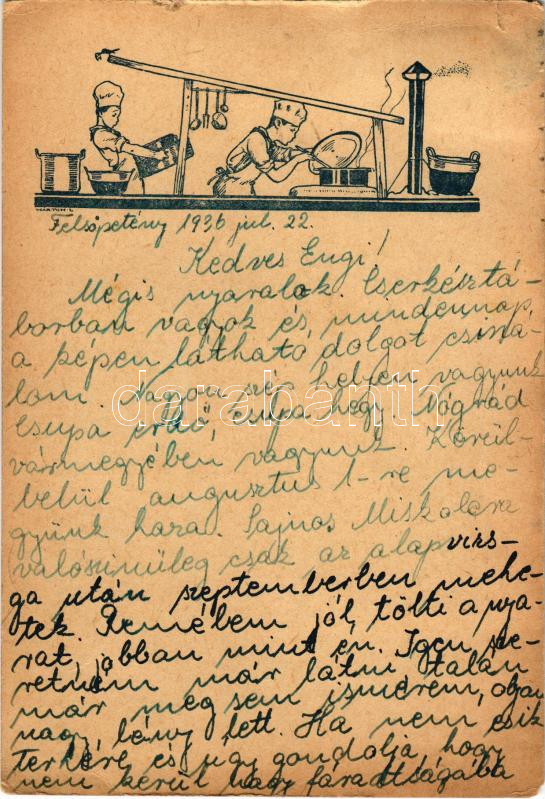 MÁRTON L.
Felsőpetény 1936 jul. 22.
Kedves Engi!
Mégis nyaralok. Cserkésztá-
borban vagyok és mindennap
a képen látható dolgot csiná-
lom. Nagyon szép helyen vagyunk
Csupa erdő, csupa hegy. Nógrád
vármegyében vagyunk. Körül-
belül augusztus 1-re me-
gyünk haza. Sajnos Miskolcra
valószinüleg csak az alapvizs-
ga után szeptemberben mehe-
tek. Remélem jól, tölti a nya-
rat, jobban mint én. Igen sze-
retném már látni talán
már meg sem ismerem, olyan
nagy lány lett. Ha nem esik
terhére és ugy gondolja hogy
nem kerül nagy fáradtságába
darabanth